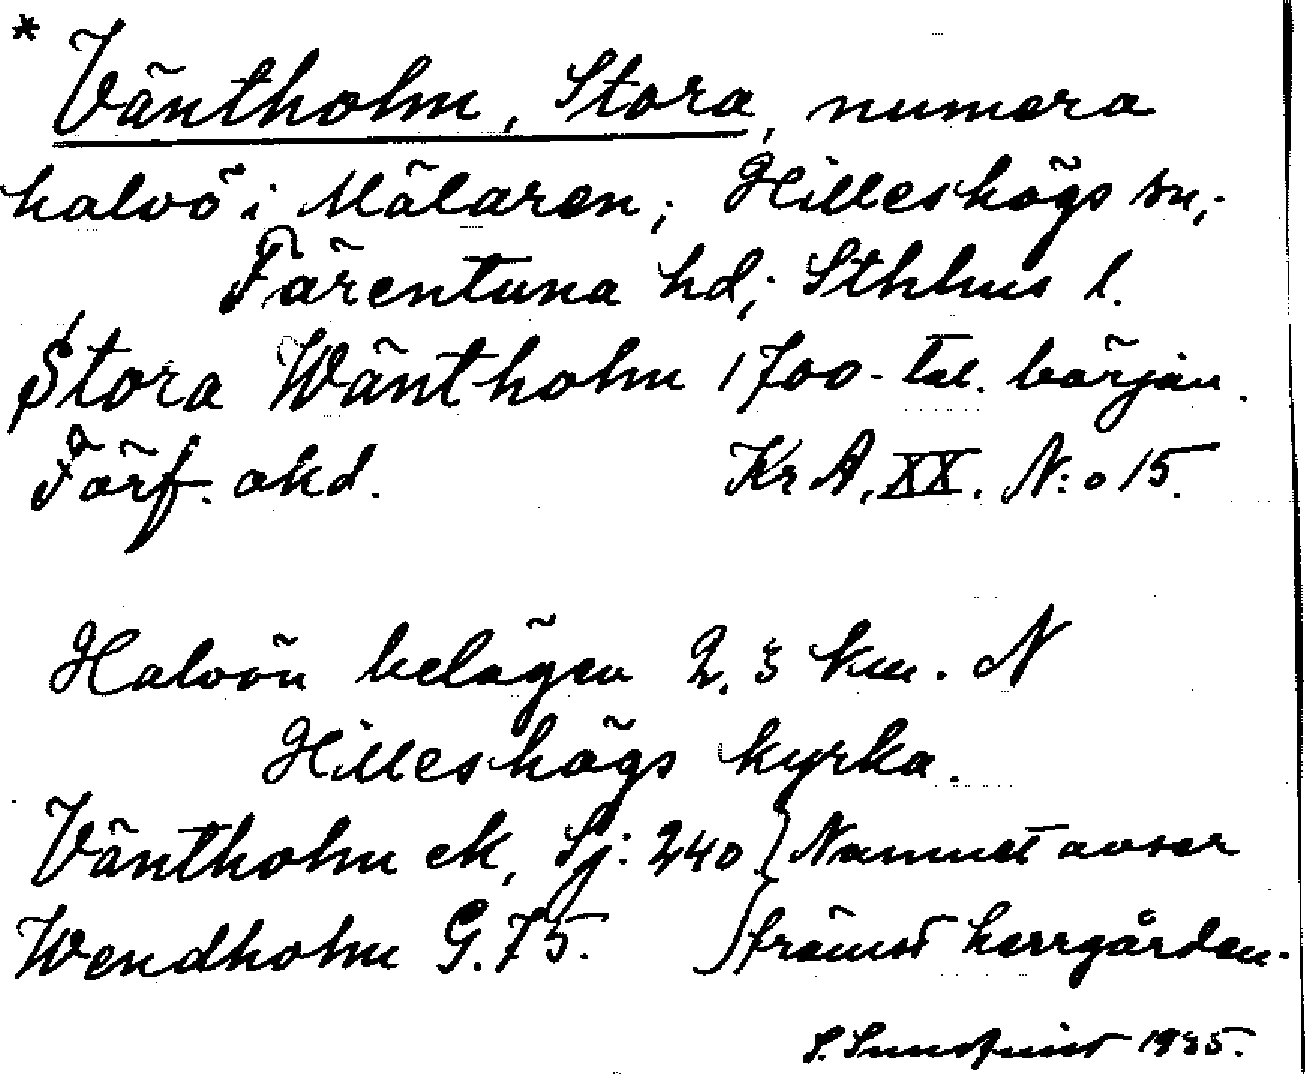 * Väntholm, Stora, numera
halvö i Mälaren; Hilleshögs sn;
Färentuna hd; Sthlms l.
Stora Wäntholm 1700-tal. början.
Förf. okd. KrA, XX. N:o 15.
Halvön belägen 2,3 km. N
Hilleshögs kyrka.
Väntholm ek, Sj: 240 } Namnet avser
Wendholm G. 75. } främst herrgården.
S. Sundquist 1935.